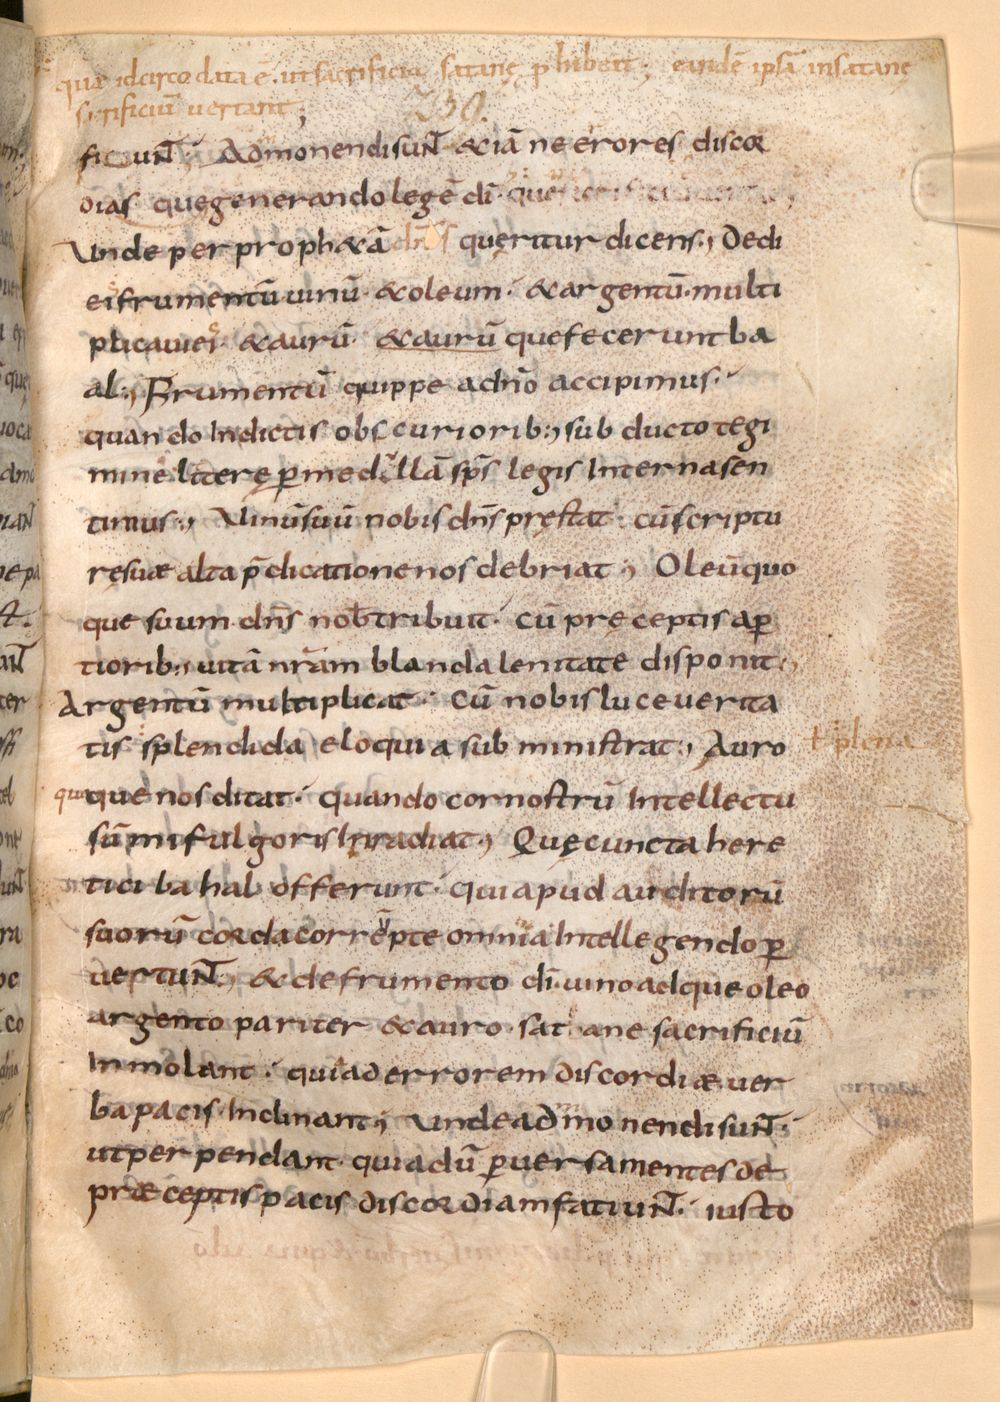 quae idcirco data ē. ut sacrificia satanę ꝓhiberet; eandē ipsā in satanę
sacrificiū vertant;
ficiunt. Admonendi sunt & iā ne errores discor
dias que generando legē dī que
Unde per proph&ā dn̄s queritur dicens; Dedi
ei frumentū uinū &oleum. &argentū multi
plicaui ei &aurū &aurū que fecerunt ba
al; Frumentū quippe a dn̄o accipimus.
quando In dictis obscuriorib; sub ducto tegi
mine litere ꝑ medullā sp̄s legis Interna sen
timus; Uinū suū nobis dn̄s pręstat. cū scriptu
rę suæ alta p̄dicatione nos debriat; Oleū quo
que suum dn̄s nob tribuit. cū pręceptis aꝑ
tiorib; uitā nr̄am blanda lenitate disponit;
Argentū multiplicat. Cū nobis luce uerita
tis splendida eloquia sub ministrat; Auro
ł plena
quoque nos ditat. quando cor nostrū Intellectu
sūmi fulgoris Irradiat; Quę cuncta here
tici bahal offerunt. qui apud auditorū
suorū corda corrupte omnia Intellegendo ꝑ
uertunt; &de frumento dī. uino adque oleo
argento pariter &auro. satane sacrificiū
Inmolant. qui ad errorem discordiæ uer
ba pacis Inclinant; Unde admonendi sunt.
ut perpendant. quia dū ꝑuersa mente sde
præceptis pacis discordiam faciunt. iusto